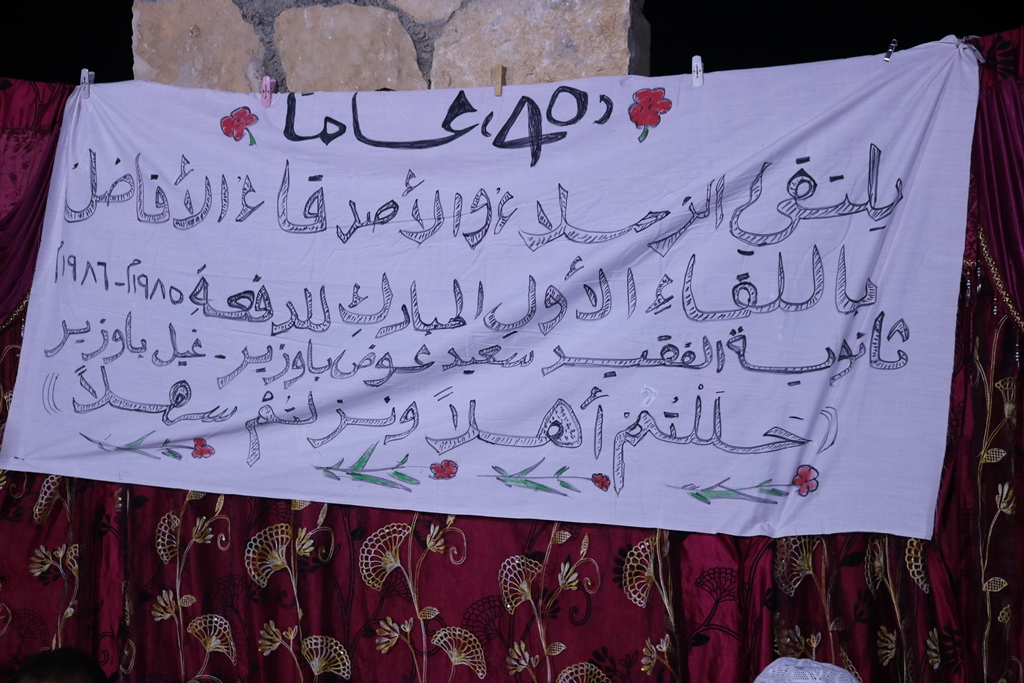 (40) عـامًا
يلتقي الزمـلاء والأصدقاء الأفاضل
باللقاء الأول المبارك للدفعة ١٩٨٥م - ١٩٨٦م
ثانوية الفقيد سعيد عوض باوزير - غيل باوزير
((حَلَلْتُمْ أهلاً ونزلتُمْ سهلاً))